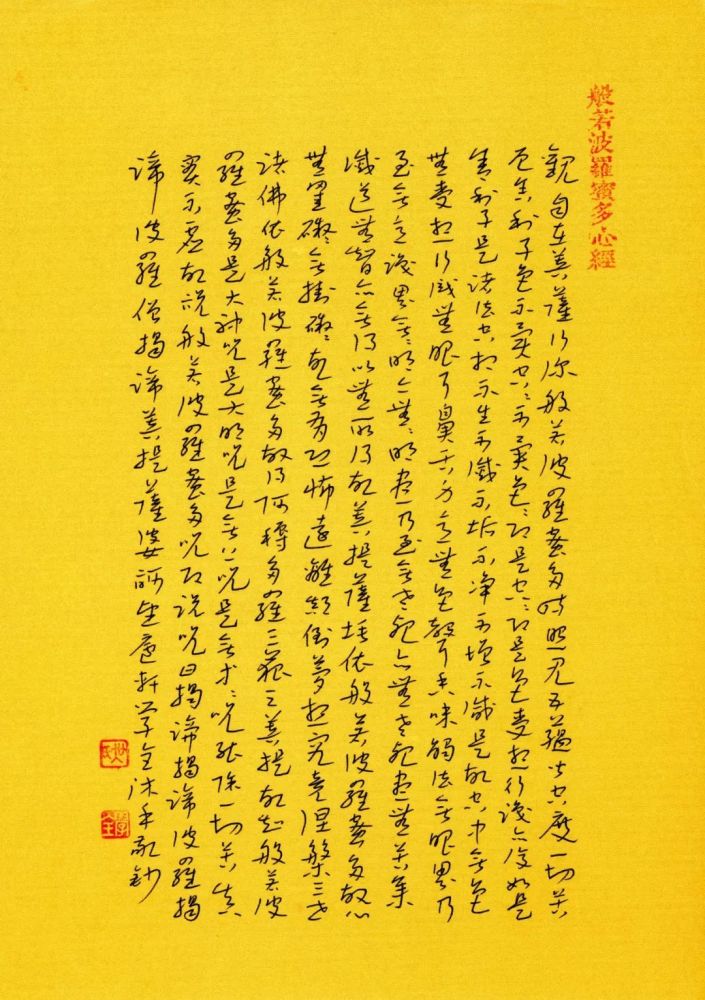 般若波羅蜜多心經
觀自在菩薩行深般若波羅蜜多時照見五蘊皆空度一切苦
厄舍利子色不異空々不異色々即是空々即是色受想行識亦復如是
舍利子是諸法空相不生不滅不垢不淨不增不減是故空中無色
無受想行識無眼耳鼻舌身意無色聲香味觸法無眼界乃
至無意識界無々明亦無々明盡乃至無老死亦無老死盡無苦集
滅道無智亦無得以無所得故菩提薩埵依般若波羅蜜多故心
無罣礙無掛礙故無有恐怖遠離顛倒夢想究竟涅槃三世
諸佛依般若波羅蜜多故得阿耨多羅三藐三菩提故知般若波
羅蜜多是大神咒是大明咒是無上咒是無等々咒能除一切苦真
實不虛故說般若波羅蜜多咒即說咒曰揭諦揭諦波羅揭
諦波羅僧揭諦菩提薩婆訶軒學全沐手敬鈔
學全